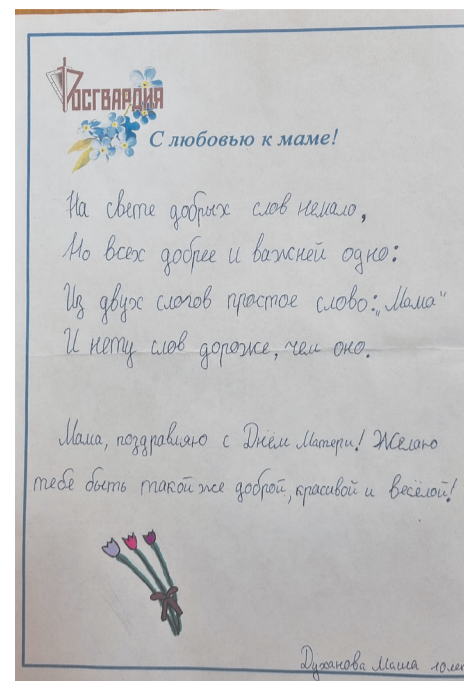 Росгвардия
С любовью к маме!
На свете добрых слов немало,
Но всех добрее и важней одно:
Из двух слогов простое слово: „Мама“
И нету слов дороже, чем оно.
Мама, поздравляю с Днём Матери! Желаю
тебе быть такой же доброй, красивой и весёлой!
Духанова Маша 10 лет